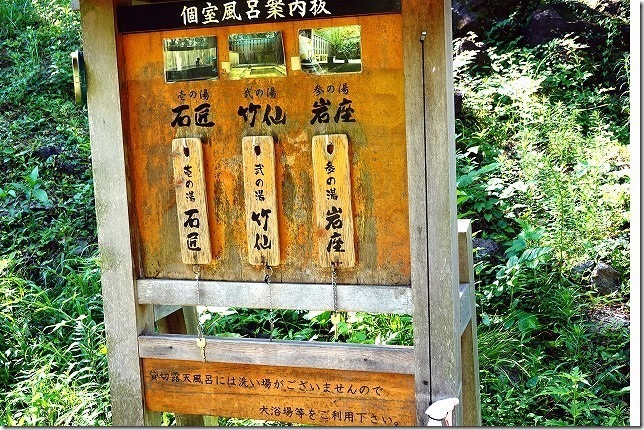 個室風呂案内板
壱の湯
石匠
弐の湯
竹仙
参の湯
岩座
壱の湯 石匠
弐の湯 竹仙
参の湯 岩座
貸切露天風呂には洗い場がございませんので
大浴場等をご利用下さい。